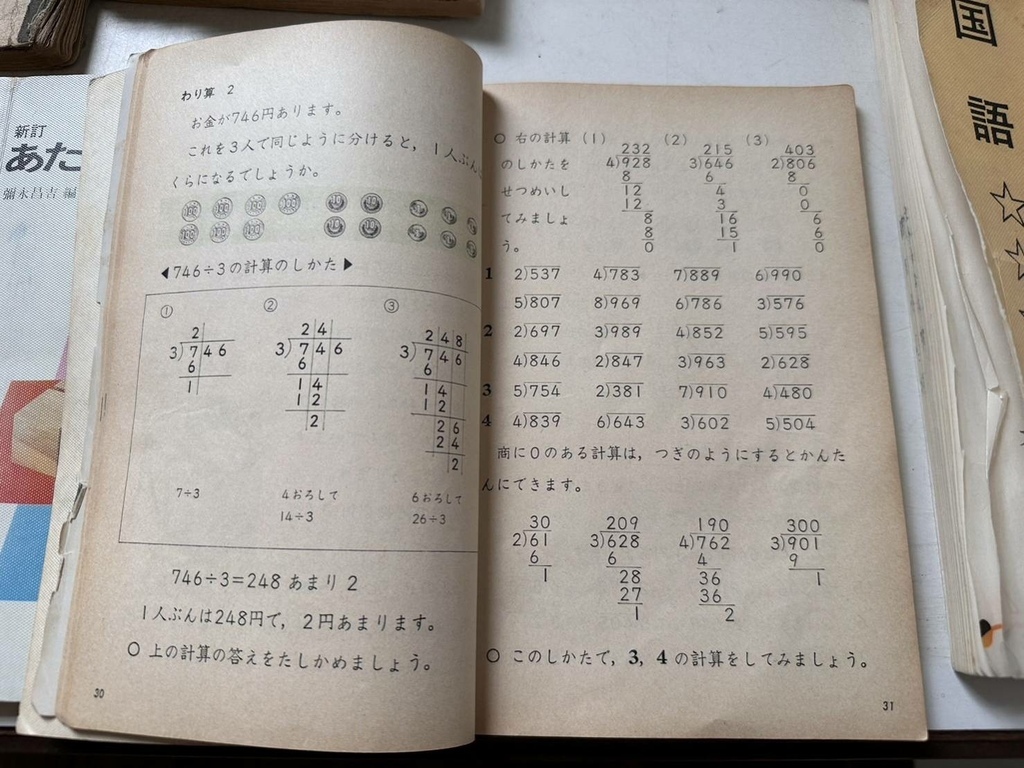 新訂
あた
彌永昌吉 編
国語
わり算 2
お金が746円あります。
これを3人で同じように分けると，1人ぶん
くらになるでしょうか。
◀746÷3の計算のしかた▶
① ② ③
2
3)746
6
1
24
3)746
6
14
12
2
248
3)746
6
14
12
26
24
2
7÷3
4おろして
14÷3
6おろして
26÷3
746÷3=248 あまり 2
1人ぶんは248円で，2円あまります。
○ 上の計算の答えをたしかめましょう。
30
○ 右の計算
のしかたを
せつめいし
てみましょ
う。
(1)
232
4)928
8
12
12
8
8
0
(2)
215
3)646
6
4
3
16
15
1
(3)
403
2)806
8
0
0
6
6
0
1 2)537 4)783 7)889 6)990
5)807 8)969 6)786 3)576
2 2)697 3)989 4)852 5)595
4)846 2)847 3)963 2)628
3 5)754 2)381 7)910 4)480
4 4)839 6)643 3)602 5)504
商に0のある計算は，つぎのようにするとかんた
んにできます。
30
2)61
6
1
209
3)628
6
28
27
1
190
4)762
4
36
36
2
300
3)901
9
1
○ このしかたで，3，4 の計算をしてみましょう。
31